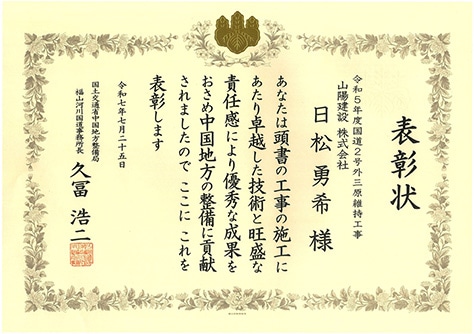 表彰状
令和5年度国道2号外三原維持工事
山陽建設 株式会社
日松勇希 様
あなたは頭書の工事の施工に
あたり卓越した技術と旺盛な
責任感により優秀な成果を
おさめ中国地方の整備に貢献
されましたので ここに これを
表彰します
令和七年七月二十五日
国土交通省中国地方整備局
福山河川国道事務所長
久冨浩二